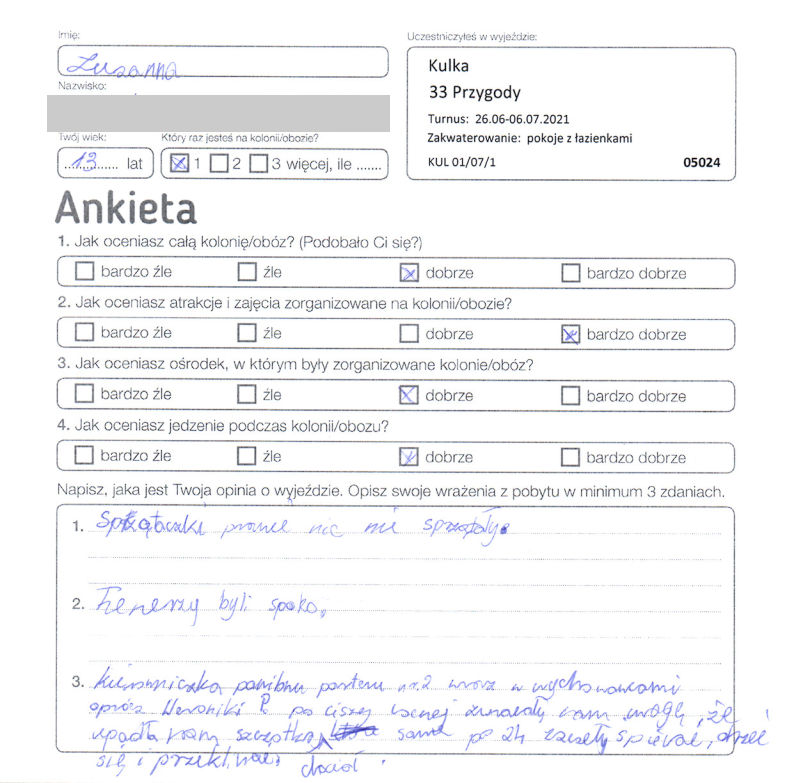 Imię:
Zuzanna
Nazwisko:
Uczestniczyłeś w wyjeździe:
Kulka
33 Przygody
Turnus: 26.06-06.07.2021
Zakwaterowanie: pokoje z łazienkami
KUL 01/07/1 05024
Twój wiek:
13 lat
Który raz jesteś na kolonii/obozie?
1 2 3 więcej, ile .......
Ankieta
1. Jak oceniasz całą kolonię/obóz? (Podobało Ci się?)
bardzo źle źle dobrze bardzo dobrze
2. Jak oceniasz atrakcje i zajęcia zorganizowane na kolonii/obozie?
bardzo źle źle dobrze bardzo dobrze
3. Jak oceniasz ośrodek, w którym były zorganizowane kolonie/obóz?
bardzo źle źle dobrze bardzo dobrze
4. Jak oceniasz jedzenie podczas kolonii/obozu?
bardzo źle źle dobrze bardzo dobrze
Napisz, jaka jest Twoja opinia o wyjeździe. Opisz swoje wrażenia z pobytu w minimum 3 zdaniach.
1. Sprzątaczki prawie nic nie
2. Trenerzy byli spoko,
3. Kierowniczka nr.2 wraz w wychowawcami
oprócz Weroniki P. po ciszy nocnej nam uwagę, że
upadła nam szczotka, chociaż same po 24 zaczęły śpiewać, drzeć
się i przeklinać.